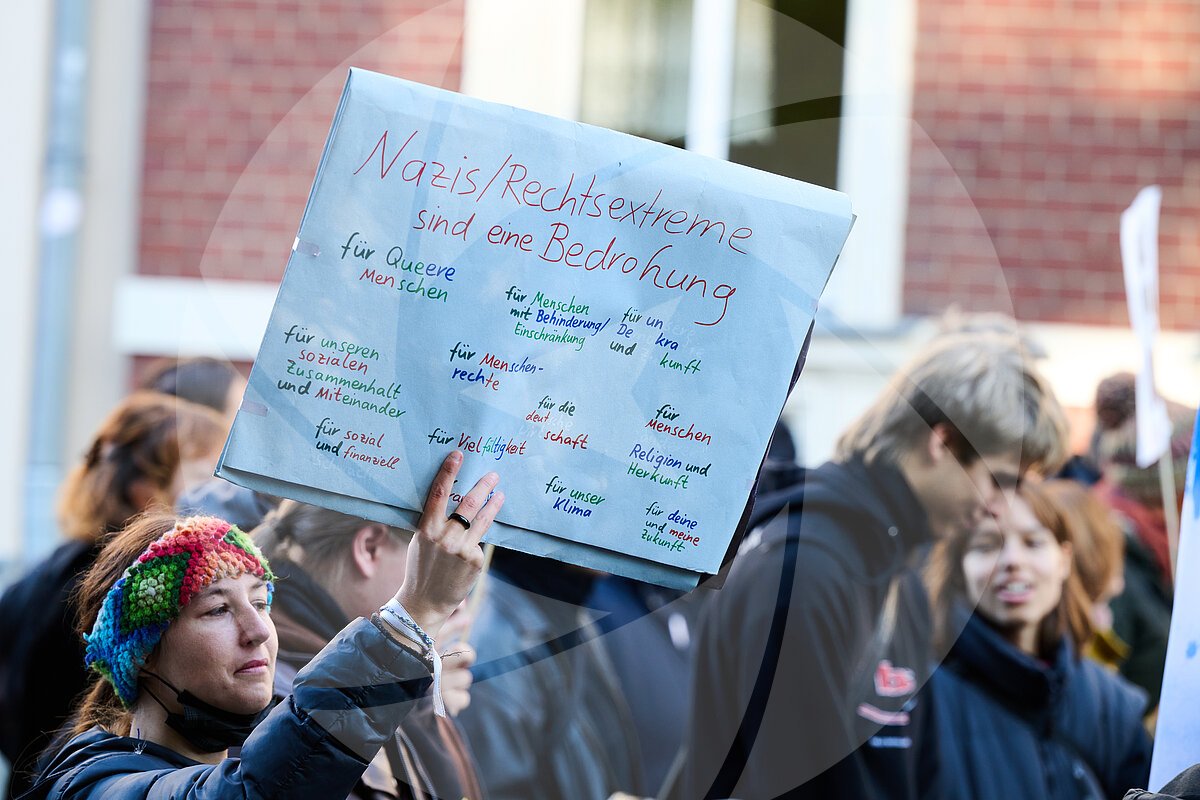 Nazis/Rechtsextreme
sind eine Bedrohung
für Queere
Menschen
für Menschen
mit Behinderung/
Einschränkung
für un
De kra
und kunft
für unseren
sozialen
Zusammenhalt
und Miteinander
für Menschen-
rechte
für die
deut schaft
für
Menschen
Religion und
Herkunft
für sozial
und finanziell
für Vielfältigkeit
für unser
Klima
für deine
und meine
Zukunft